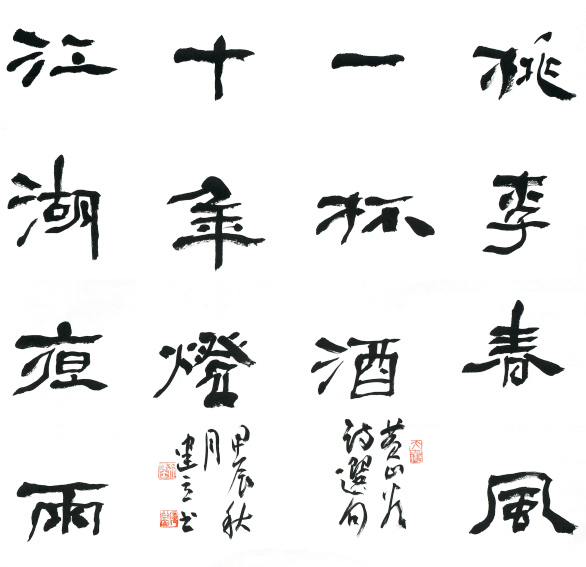 桃李春風
一杯酒
黄山谷
詩選句
江湖夜雨
十年燈
甲辰秋
月
建立书